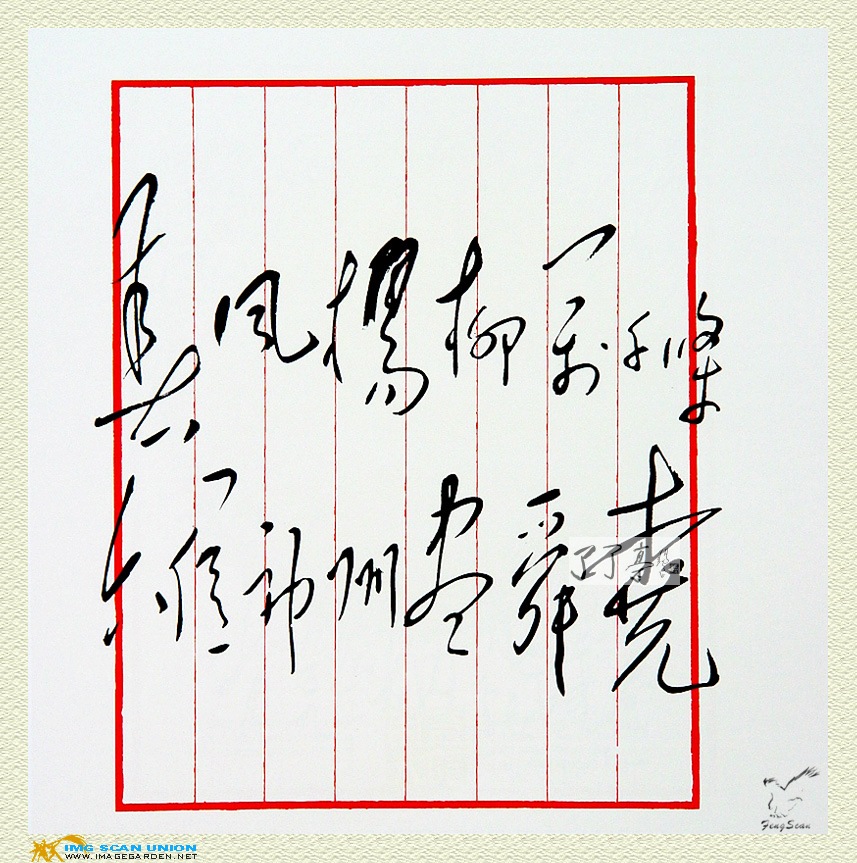 春風楊柳萬千條
六億神州盡舜堯
FengScan
IMG SCAN UNION
WWW.IMAGEGARDEN.NET